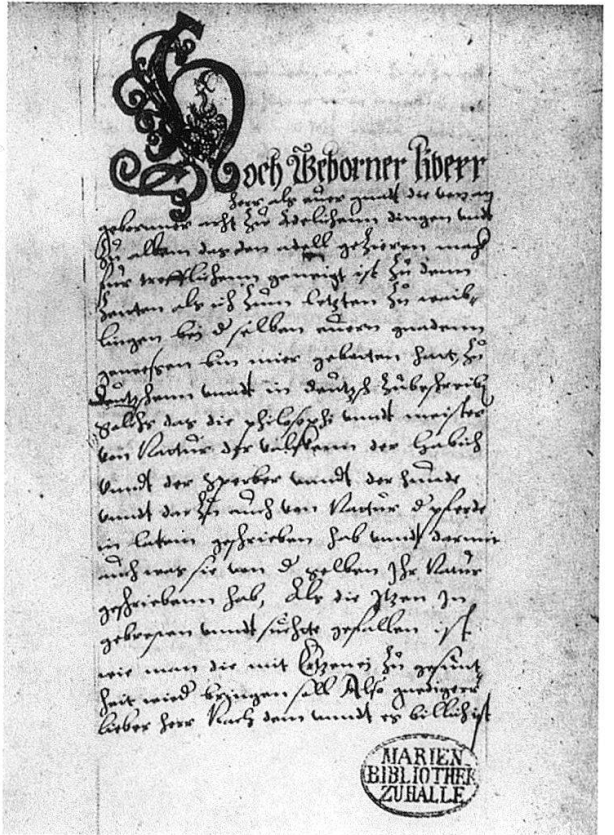 Hoch Geborner liberr
herr als euer gnadt die von an
geborner artt zu Adelichenn dingen undt
zu allem das den adell gezieren mag
fur trefflichenn geneigt ist zu denn
Zeiten als ich zum letzten zu waib
lingen bei d selben euern gnadenn
gewessen bin mier gebotten hatt, zu
deutzschenn undt in deutzsch zubeschreib
das die philosophi undt meister
von Natur der valckenn der habich
undt der Sperber undt der hunde
undt dar zu auch von Natur d pferde
in latein geschrieben hab undt darmit
auch was sie von d selben Ihr Natur
geschriebenn hab, Als die Itzen In
gebresten undt suchte gefallen ist
wie man die mit Ertzenei zu gesunt
heit wied bringen soll Also gnediger
lieber herr Nach dem undt es billich ist
MARIEN
BIBLIOTHEK
ZU HALLE